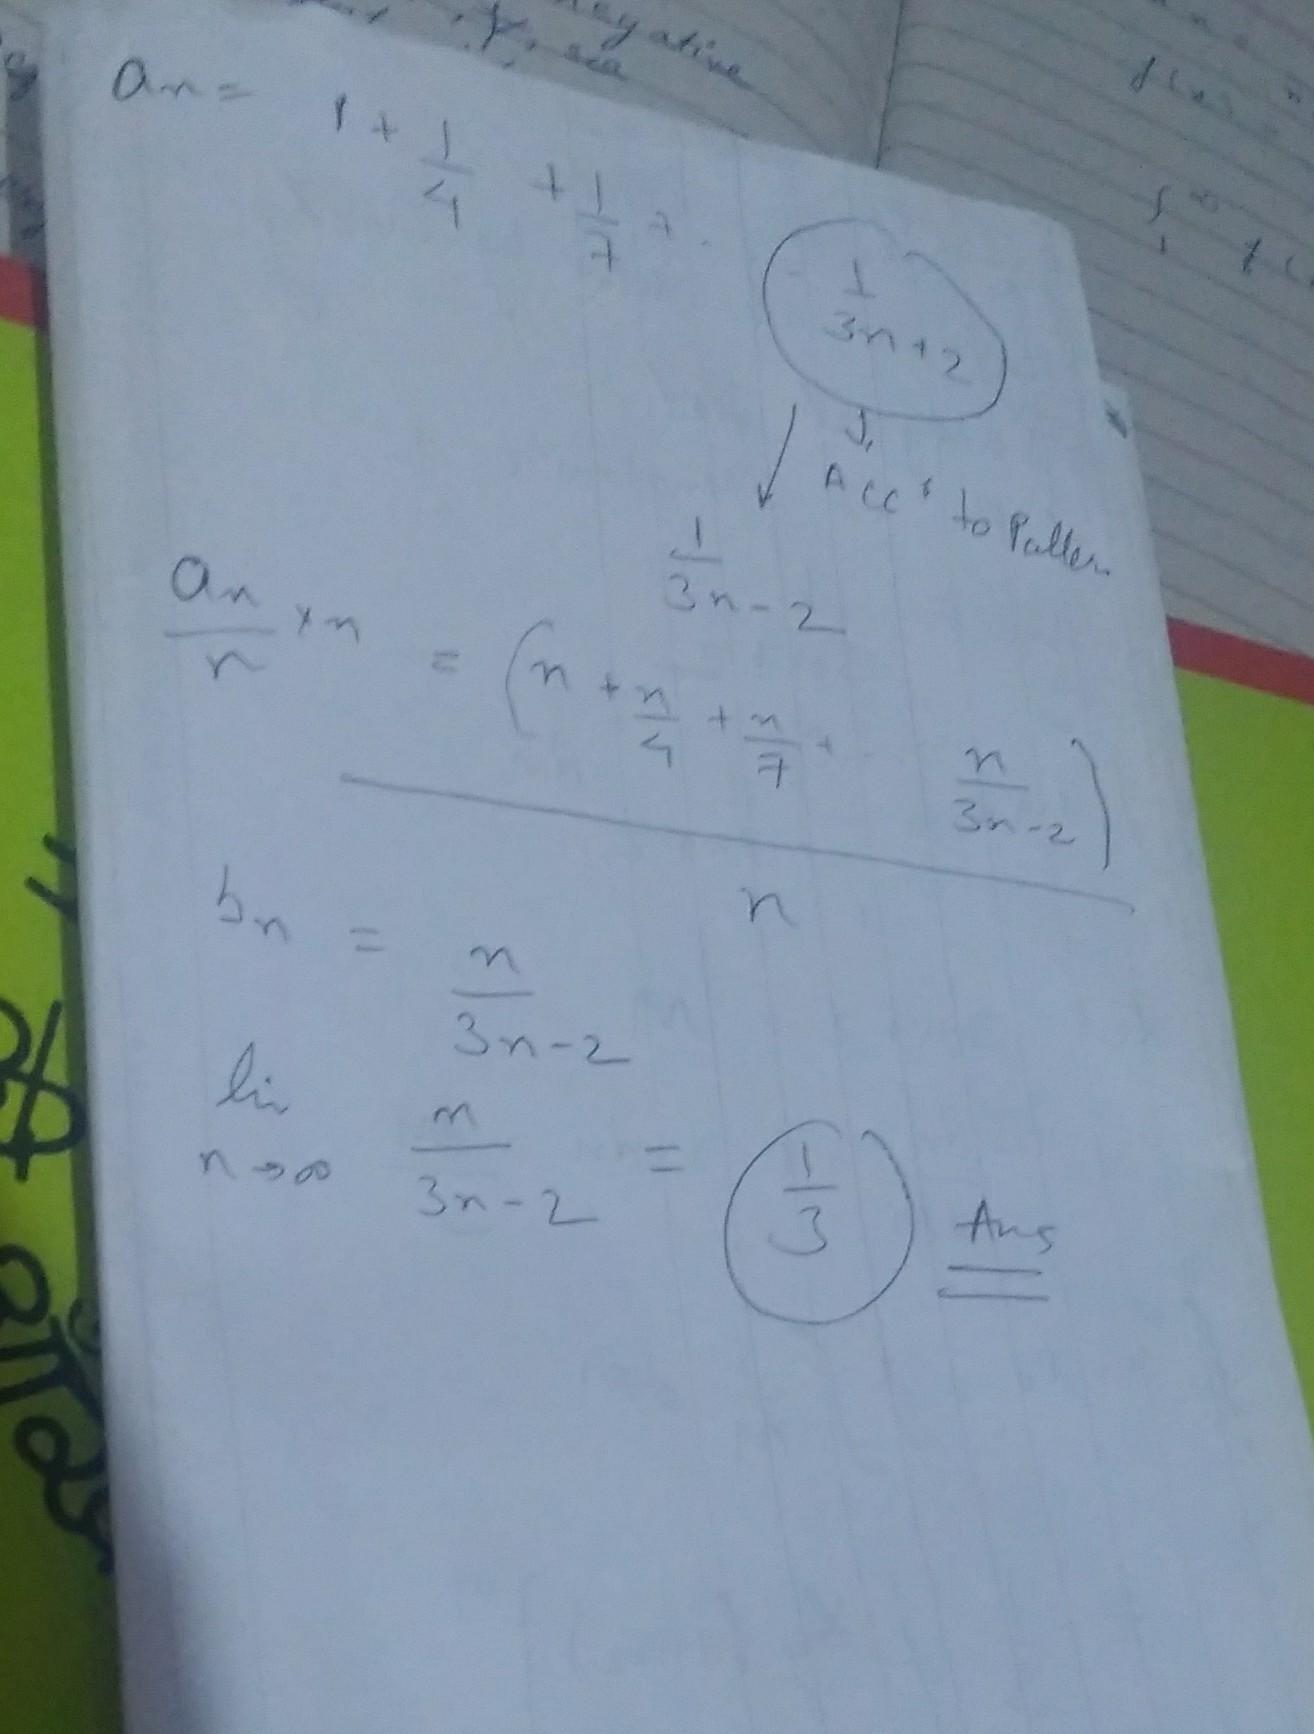 negative
an = 1 + 1/4 + 1/7 + . 1/3n+2
Acc to Patter
1/3n-2
an/n × n = (n + n/4 + n/7 + - n/3n-2)/n
bn = n/3n-2
lim n→∞ n/3n-2 = 1/3 Ans